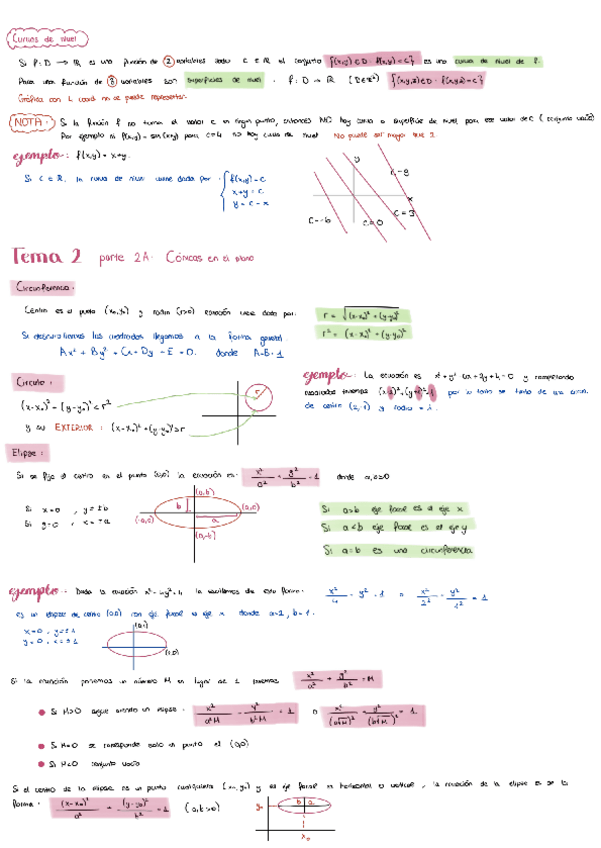 Curvas de nivel
Si f: D → ℝ es una función de 2 variables dado c ∈ ℝ el conjunto {(x,y) ∈ D : f(x,y) = c} es una curva de nivel de f.
Para una función de 3 variables son superficies de nivel . f: D → ℝ
Gráfica con 4 coord no se puede representar.
NOTA: Si la función f no toma el valor c en ningún punto, entonces NO hay curva o superficie de nivel para ese valor de C (conjunto vacío)
Por ejemplo si f(x,y) = sen(x+y) para c=4 no hay curva de nivel No puede ser mayor que 1
ejemplo: f(x,y) = x+y.
Si C ∈ ℝ, la curva de nivel viene dada por
f(x,y) = c
x+y = c
y = c - x
y
x
C=0
C=3
Tema 2 parte 2A. Cónicas en el plano
Circunferencia.
Centro es el punto (x₀,y₀) y radio (r>0) ecuación viene dada por:
r = √(x-x₀)² + (y-y₀)²
r² = (x-x₀)² + (y-y₀)²
Si desarrollamos los cuadrados llegamos a la forma general
donde A=B=1
Círculo:
y su EXTERIOR :
r
ejemplo: La ecuación es
cuadrados tenemos
por lo tanto se trata de una circun.
de centro (2,-1) y radio = 1.
Elipse:
Si se fija el centro en el punto (0,0) la ecuación es: x²/a² + y²/b² = 1 donde a,b>0
Si x=0 , y=±b
Si y=0 , x=±a
(0,b)
(-a,0)
(a,0)
(0,-b)
b
a
Si a>b eje focal es el eje x
Si a<b eje focal es el eje y
Si a=b es una circunferencia
ejemplo: Dada la ecuación
la escribimos de esta forma:
es una elipse de centro (0,0) con eje focal el eje x donde a=2, b=1.
(0,1)
Si la ecuación ponemos un número M en lugar de 1 tenemos x²/a² + y²/b² = M
Si M>0 sigue siendo una elipse
Si M=0 se corresponde solo un punto el (0,0)
Si M<0 conjunto vacío
Si el centro de la elipse es un punto cualquiera (x₀,y₀) y es eje focal es horizontal o vertical , la ecuación de la elipse es de la
forma: (x-x₀)²/a² + (y-y₀)²/b² (a,b>0)
y₀
b
a
x₀